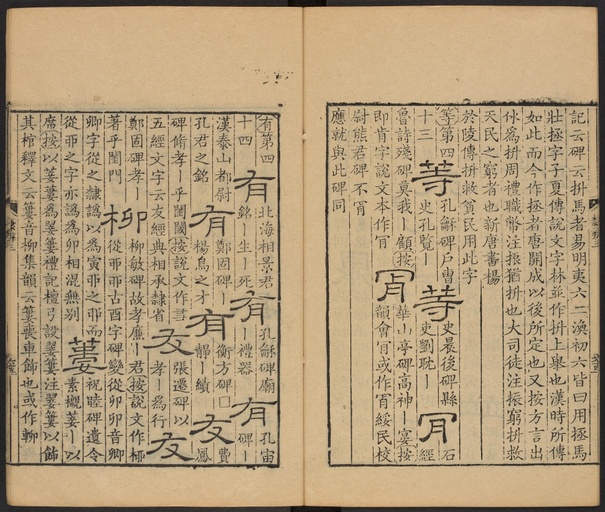 記云碑云抍馬者易明夷六二渙初六皆曰用拯馬
壯拯字子夏傳說文字林並作抍上舉也漢時所傳
如此而今作拯者唐開成以後所定也又按方言出
㲻為抍周禮職幣注振猶抍也大司徒注振窮抍救
天民之窮者也新唐書楊
於陵傳抍救貧民用此字
等第四 等 孔龢碑戶曹 等 史晨後碑縣 冐 石
十三 史孔覽丨 吏劉耽丨 經
魯詩殘碑莫我丨顧按 冐 華山亭碑高神丨宴按
即肯字說文本作肎 韻會肎或作肯綏民校
尉熊君碑不肯
應就與此碑同
有第四 有 北海相景君 有 孔龢碑廟 有 孔宙
十四 銘丨生丨死 丨禮器 碑丨
漢泰山都尉 有 鄭固碑丨 有 衡方碑囗 友 費鳳
孔君之銘 楊烏之才 靜丨績
碑脩孝丨乎閨閫按說文作㕛 友 張遷碑以 友
五經文字云友經典相承隸省 孝丨為行
鄭固碑孝 柳 柳敏碑故孝廉丨君按說文作桺
著乎閨門 從丣丣古酉字碑變從卯卯音卿
卿字從之隸譌以為寅丣之丣而 蔞 祝睦碑遺令
從丣之字亦譌為卯相混無别 素櫬蔞丨以
席按以蔞蔞為翣蔞禮記檀弓設蔞翣注翣蔞以飾
其棺釋文云蔞音柳集韻云蔞喪車飾也或作輀